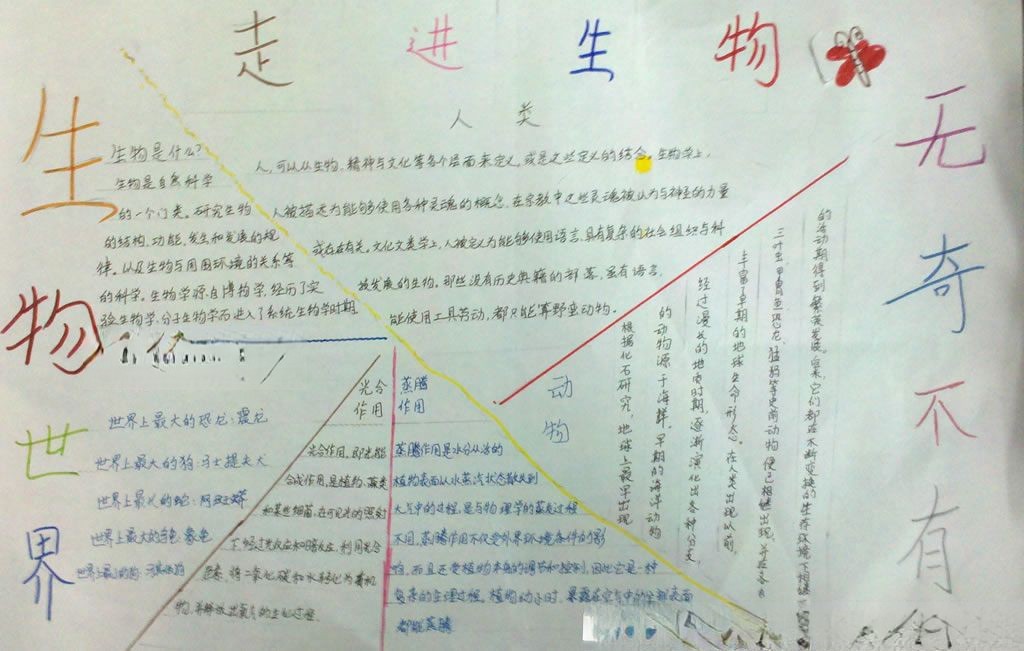 走进生物
生物世界
无奇不有
人类
生物是什么?
生物是自然科学
的一个门类。研究生物
的结构、功能、发生和发展的规
律。以及生物与周围环境的关系等
的科学。生物学源自博物学,经历了实
验生物学、分子生物学而进入了系统生物学时期
人,可以从生物、精神与文化等各个层面来定义,或是这些定义的结合。生物学上,
人被描述为能够使用各种灵魂的概念,在宗教中这些灵魂被认为与神圣的力量
或存在有关。文化人类学上,人被定义为能够使用语言、具有复杂的社会组织与科
技发展的生物。那些没有历史典籍的部落,虽有语言,
能使用工具劳动,都只能算野蛮动物。
世界上最大的恐龙:震龙
世界上最大的狗:马士提夫犬
世界上最大的蛇:
世界上最大的龟:象龟
光合
作用
光合作用,即光能
合成作用,是植物、藻类
和某些细菌,在可见光的照射
下,经过光反应和暗反应,利用光合
色素,将二氧化碳和水转化为有机
物,并释放出氧气的生化过程
蒸腾
作用
蒸腾作用是水分从活的
植物表面以水蒸汽状态散失到
大气中的过程,是与物理学的蒸发过程
不同,蒸腾作用不仅受外界环境条件的影
响,而且还受植物本身的调节和控制,因此它是一种
复杂的生理过程。植物幼小时,暴露在空气中的全部表面
都能蒸腾
动
物
根据化石研究,地球上最早出现
的动物源于海洋。早期的海洋动物
经过漫长的地质时期,逐渐演化出各种分支,
丰富了早期的地球生命形态。在人类出现以前,
三叶虫、甲胄鱼、恐龙、猛犸等史前动物便已相继出现,并在各自
的活动期得到繁荣发展。后来,它们都在不断变换的生存环境下相继